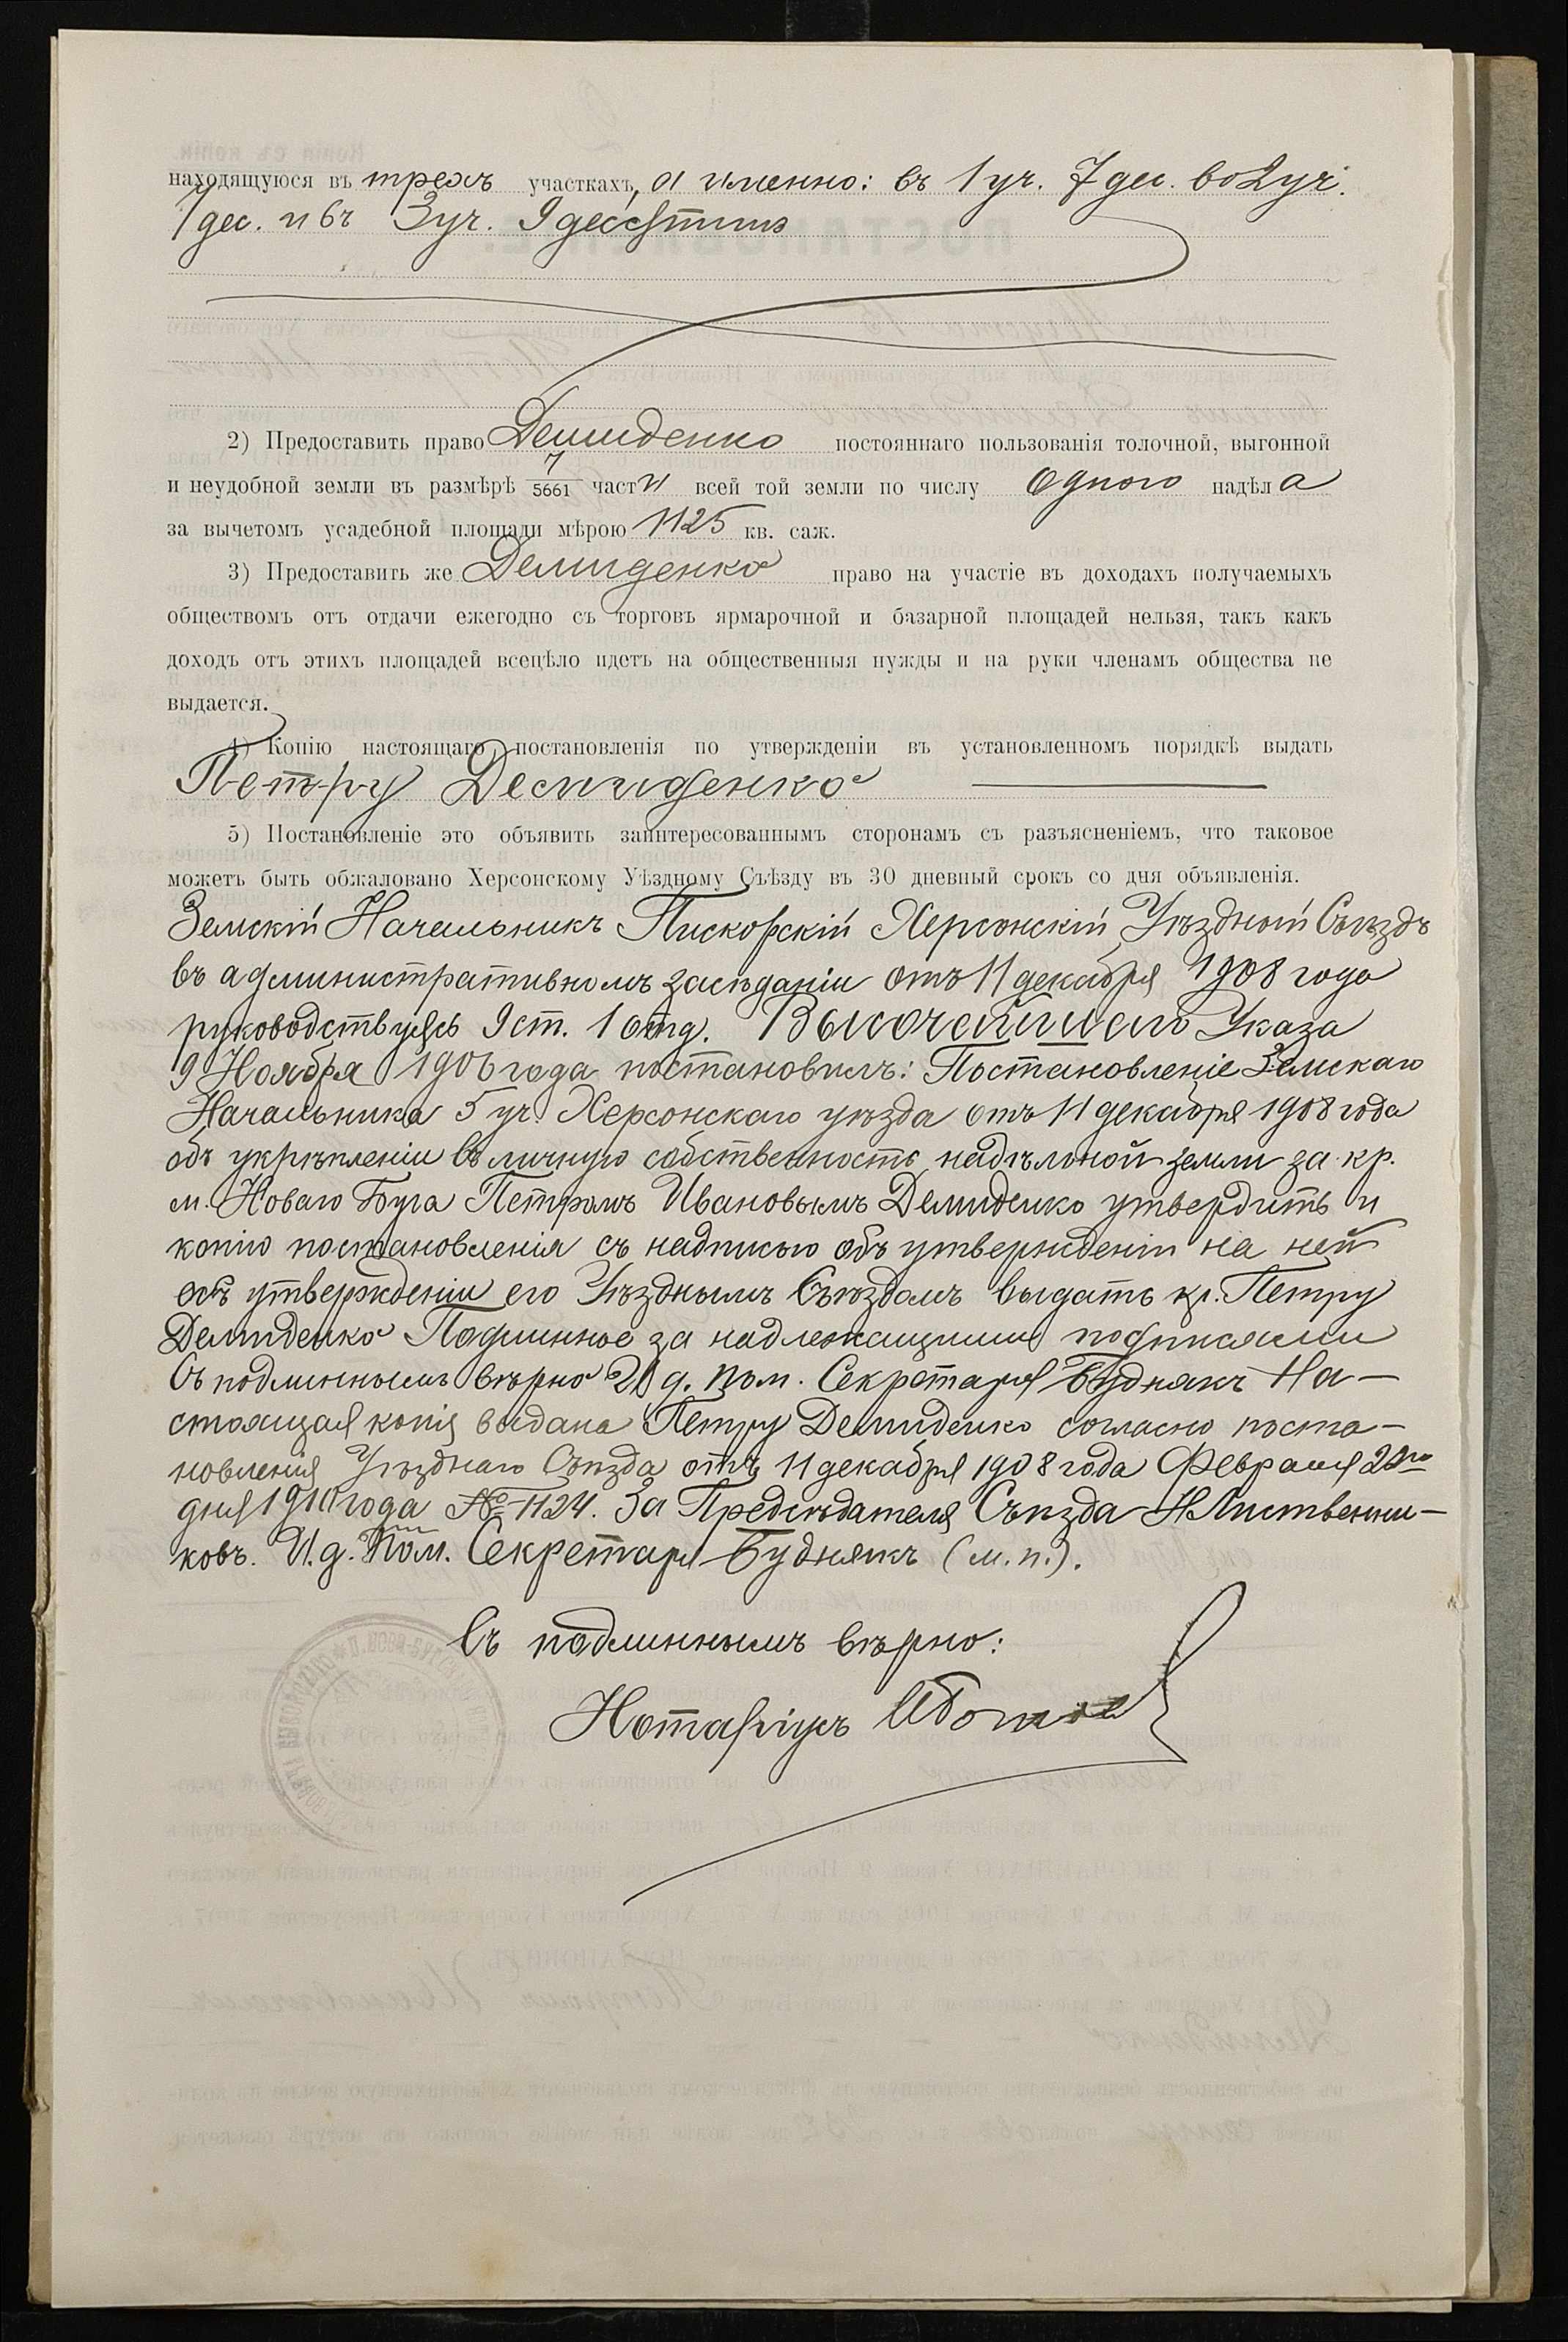 находящуюся въ трехъ участкахъ, а именно: въ 1 уч. 7 дес. во 2 уч.
7 дес. и въ 3 уч. 9 десятинъ
2) Предоставить право Демиденко постояннаго пользованія толочной, выгонной
и неудобной земли въ размѣрѣ 7/5661 части всей той земли по числу одного надѣла
за вычетомъ усадебной площади мѣрою 1125 кв. саж.
3) Предоставить же Демиденко право на участіе въ доходахъ получаемыхъ
обществомъ отъ отдачи ежегодно съ торговъ ярмарочной и базарной площадей нельзя, такъ какъ
доходъ отъ этихъ площадей всецѣло идетъ на общественныя нужды и на руки членамъ общества не
выдается.
4) Копію настоящаго постановленія по утвержденіи въ установленномъ порядкѣ выдать
Петру Демиденко
5) Постановленіе это объявить заинтересованнымъ сторонамъ съ разъясненіемъ, что таковое
можетъ быть обжаловано Херсонскому Уѣздному Съѣзду въ 30 дневный срокъ со дня объявленія.
Земскій Начальникъ Пискорскій Херсонскій Уѣздный Съѣздъ
въ административномъ засѣданіи отъ 11 декабря 1908 года
руководствуясь 9 ст. 1 отд. Высочайшаго Указа
9 Ноября 1906 года постановилъ: Постановленіе Земскаго
Начальника 5 уч. Херсонскаго уѣзда отъ 11 декабря 1908 года
объ укрѣпленіи въ личную собственность надѣльной земли за кр.
м. Новаго Буга Петромъ Ивановымъ Демиденко утвердить и
копію постановленія съ надписью объ утвержденіи на ней
объ утвержденіи его Уѣзднымъ Съѣздомъ выдать кр. Петру
Демиденко Подлинное за надлежащими подписями
Съ подлиннымъ вѣрно И д. Пом. Секретаря Буднякъ На-
стоящая копія выдана Петру Демиденко согласно поста-
новленія Уѣзднаго Съѣзда отъ 11 декабря 1908 года Февраля
дня 1910 года № 1124. За Предсѣдателя Съѣзда Н Листвени-
ковъ. И.д. Пом. Секретаря Буднякъ (м.п.).
Съ подлиннымъ вѣрно:
Нотаріусъ